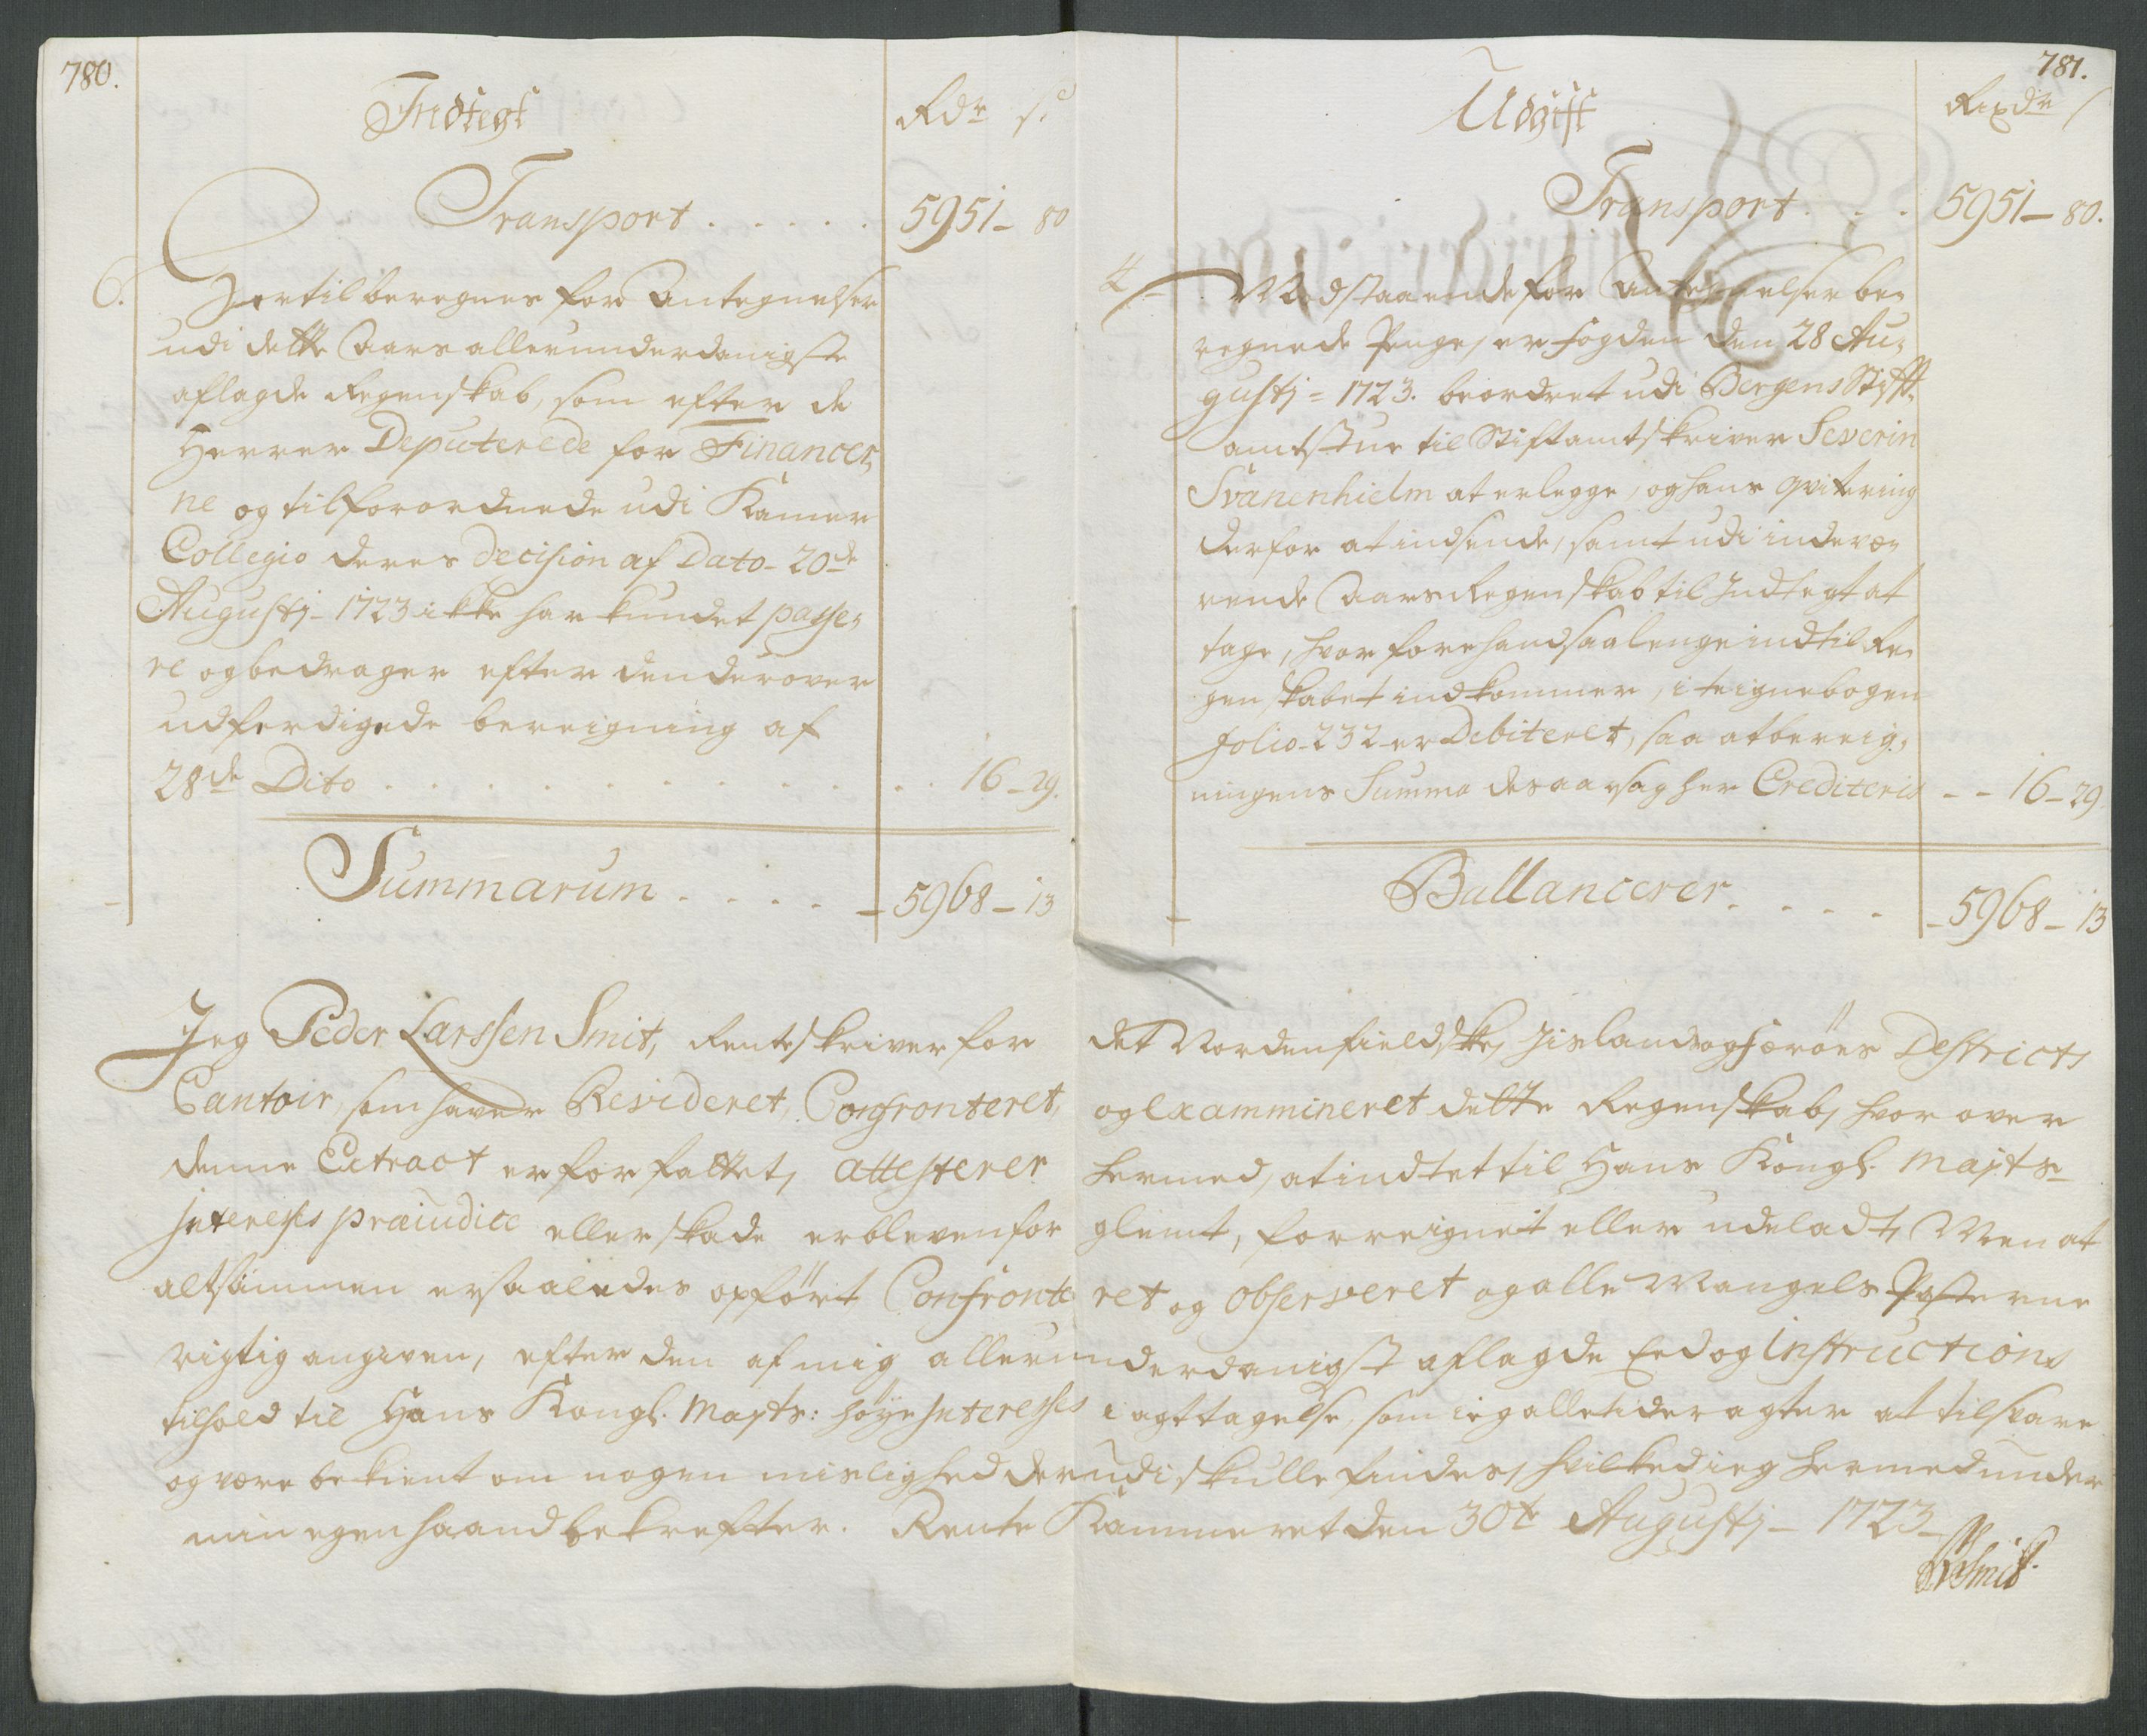 780.
Indtegt
Rdr s
Transport . . . . . 5951 – 80
6.
Hertil beregnes for Antegnelser
udi dette Aars allerunderdanigste
aflagde Regenskab, som efter de
Herrer Deputerede for Financer,
ne og tilforordnede udi Kamer
Collegio deres Decision af Dato – 20de
Augustj – 1723 ikke har kundet passe,
re og bedrager efter den derover
udferdigede bereigning af
28de Dito . . . . . . . . . . . 16 – 29.
Summarum . . . . – 5968 – 13
781.
Udgift
Rixdr
Transport . . . 5951 – 80.
4
Modstaaende for Antegnelser be,
regnede Penge, er Fogden den 28 Au,
gustj = 1723. beordret udi Bergens Stift,
amtstue til Stiftamtskriver Severin
Svanenhielm at erlegge, og hans qvitering
derfor at indsende, samt udi indevæ,
rende Aars Regenskab til Indtegt at
tage, hvorfore hand saalenge indtil Re,
genskabet indkommer, i teignebogen
Folio – 232 – er Debiteret, saa at bereig,
ningens Summa desaarsag her Crediteris – – 16 – 29
Ballancerer . . . . – 5968 – 13
Jeg Peder Larssen Smit, Renteskriver for det Nordenfieldske, Iisland og Færöes Destricts
Cantoir, som haver Revideret, Confronteret, og Exammineret dette Regenskab, hvor over
denne Extract er forfattet, attesterer hermed, at indtet til Hans Kongl. Majts
Interesses præiudice eller skade er bleven for glemt, forreignet eller udeladt, Men at
altsammen er saaledes opfört Confronteret og Observeret og alle Mangels Posterne
rigtig angiven, efter den af mig allerunderdanigst aflagde Eed og Instructions
tilhold til Hans Kongl. Majts: höye Interesses i agttagelse, som ieg alletider agter at tilsvare
og være bekient om nogen mislighed derudi skulle findes, hvilked ieg hermed under
min egen haand bekrefter. Rente Kammeret den 30te Augustj – 1723 –
PLSmit